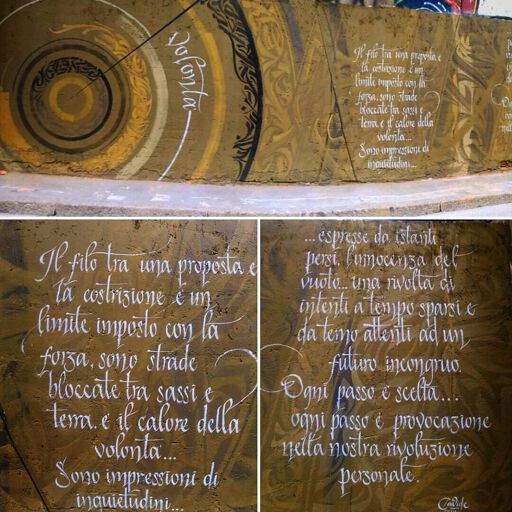 Volontà
Il filo tra una proposta e
la costrizione è un
limite imposto con la
forza, sono strade
bloccate tra sassi e
terra, è il calore della
volontà...
Sono impressioni di
inquietudini...
Il filo tra una proposta e
la costrizione è un
limite imposto con la
forza, sono strade
bloccate tra sassi e
terra, è il calore della
volontà...
Sono impressioni di
inquietudini...
...espresse da istanti
persi l'innocenza del
vuoto... una rivolta di
intenti a tempo sparsi e
da temo attenti ad un
futuro incongruo.
Ogni passo è scelta...
ogni passo è provocazione
nella nostra rivoluzione
personale.